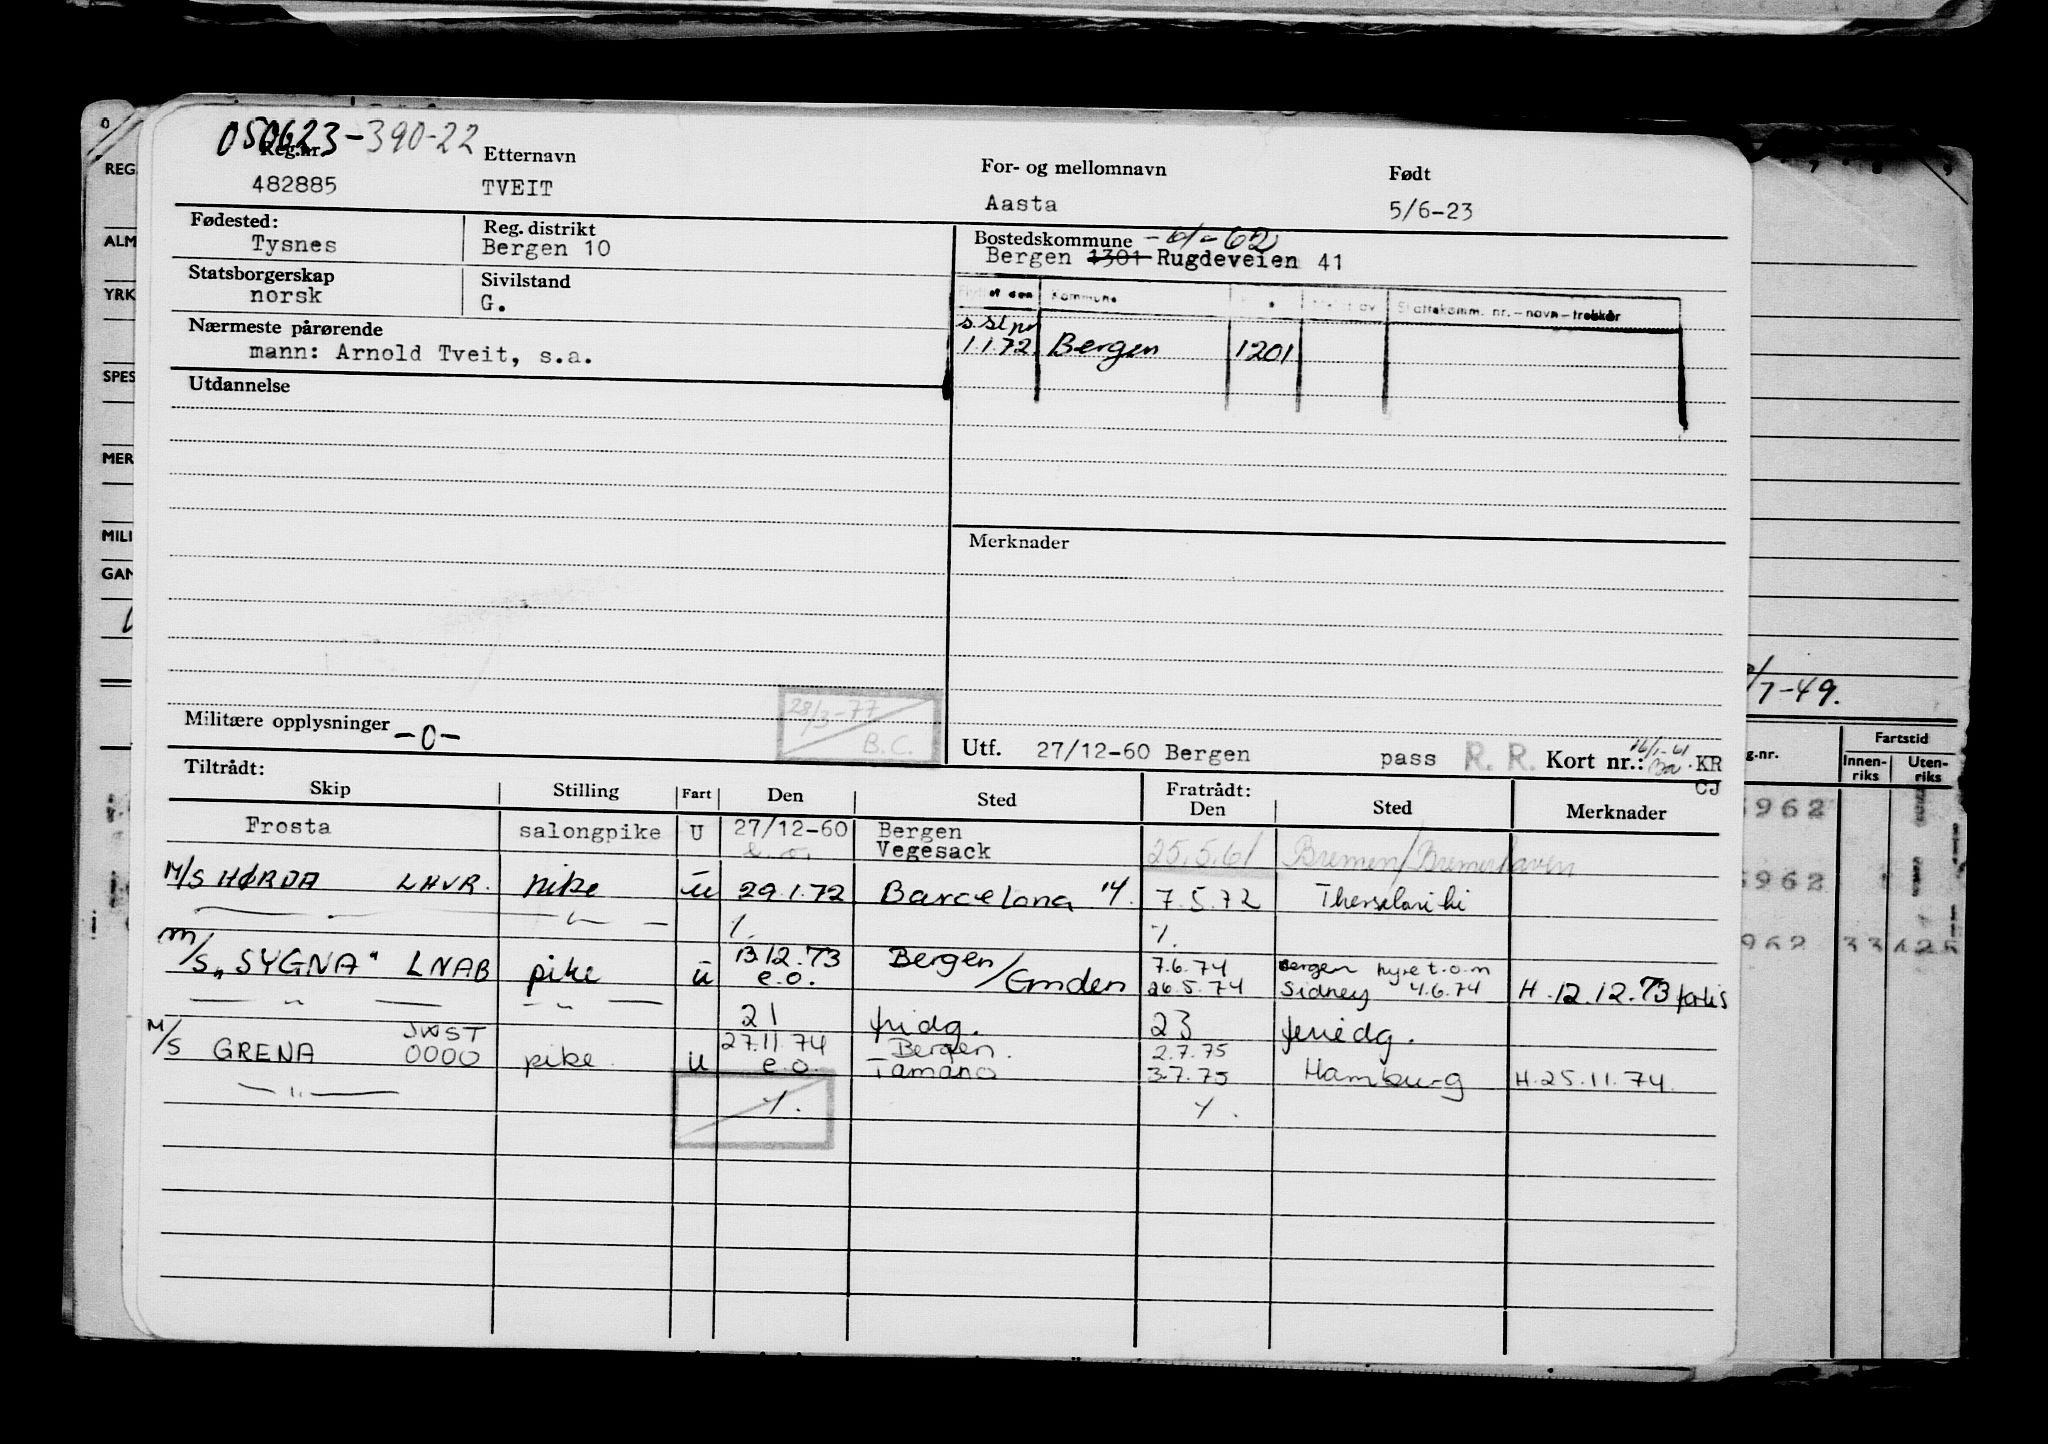 050623-390-22
Reg.nr. Etternavn For- og mellomnavn Født
482885 TVEIT Aasta 5/6-23
Fødested: Reg. distrikt Bostedskommune -61-62
Tysnes Bergen 10 Bergen 1301 Rugdeveien 41
Statsborgerskap Sivilstand
norsk G.
Kommune Skattekomm. nr.-navn-
Nærmeste pårørende
mann: Arnold Tveit, s.a.
1.1.72 Bergen 1201
Utdannelse
Merknader
28/3-77
B.C.
Militære opplysninger -0-
Utf. 27/12-60 Bergen pass R. R. Kort nr.: 16/1-61 KR
CJ
Tiltrådt: Fratrådt:
Skip Stilling Fart Den Sted Den Sted Merknader
Frosta salongpike U 27/12-60 Bergen
e.o. Vegesack 25.5.61 Bremen/Bremerhaven
M/S HØRDA LHVR. pike u 29.1.72 Barcelona 14. 7.5.72
— " — — " — 1/. 1/.
M/S „SYGNA" LNAB pike u 13.12.73 Bergen 7.6.74 Bergen hyre t.o.m
e.o. /Emden 26.5.74 Sidney 4.6.74 H.12.12.73
— " — — " — 21 fridg. 23 feriedg.
M/S GRENA JWST
0000 pike u 27.11.74 Bergen. 2.7.75
e.o. Tamano 3.7.75 Hamburg H.25.11.74.
— " — 1/. 1/.
REG.
ALM
YRK
SPES
MER
MILI
GAN
/7-49.
g.nr. Fartstid
Innen-
riks Uten-
riks
962
962
962 33 425